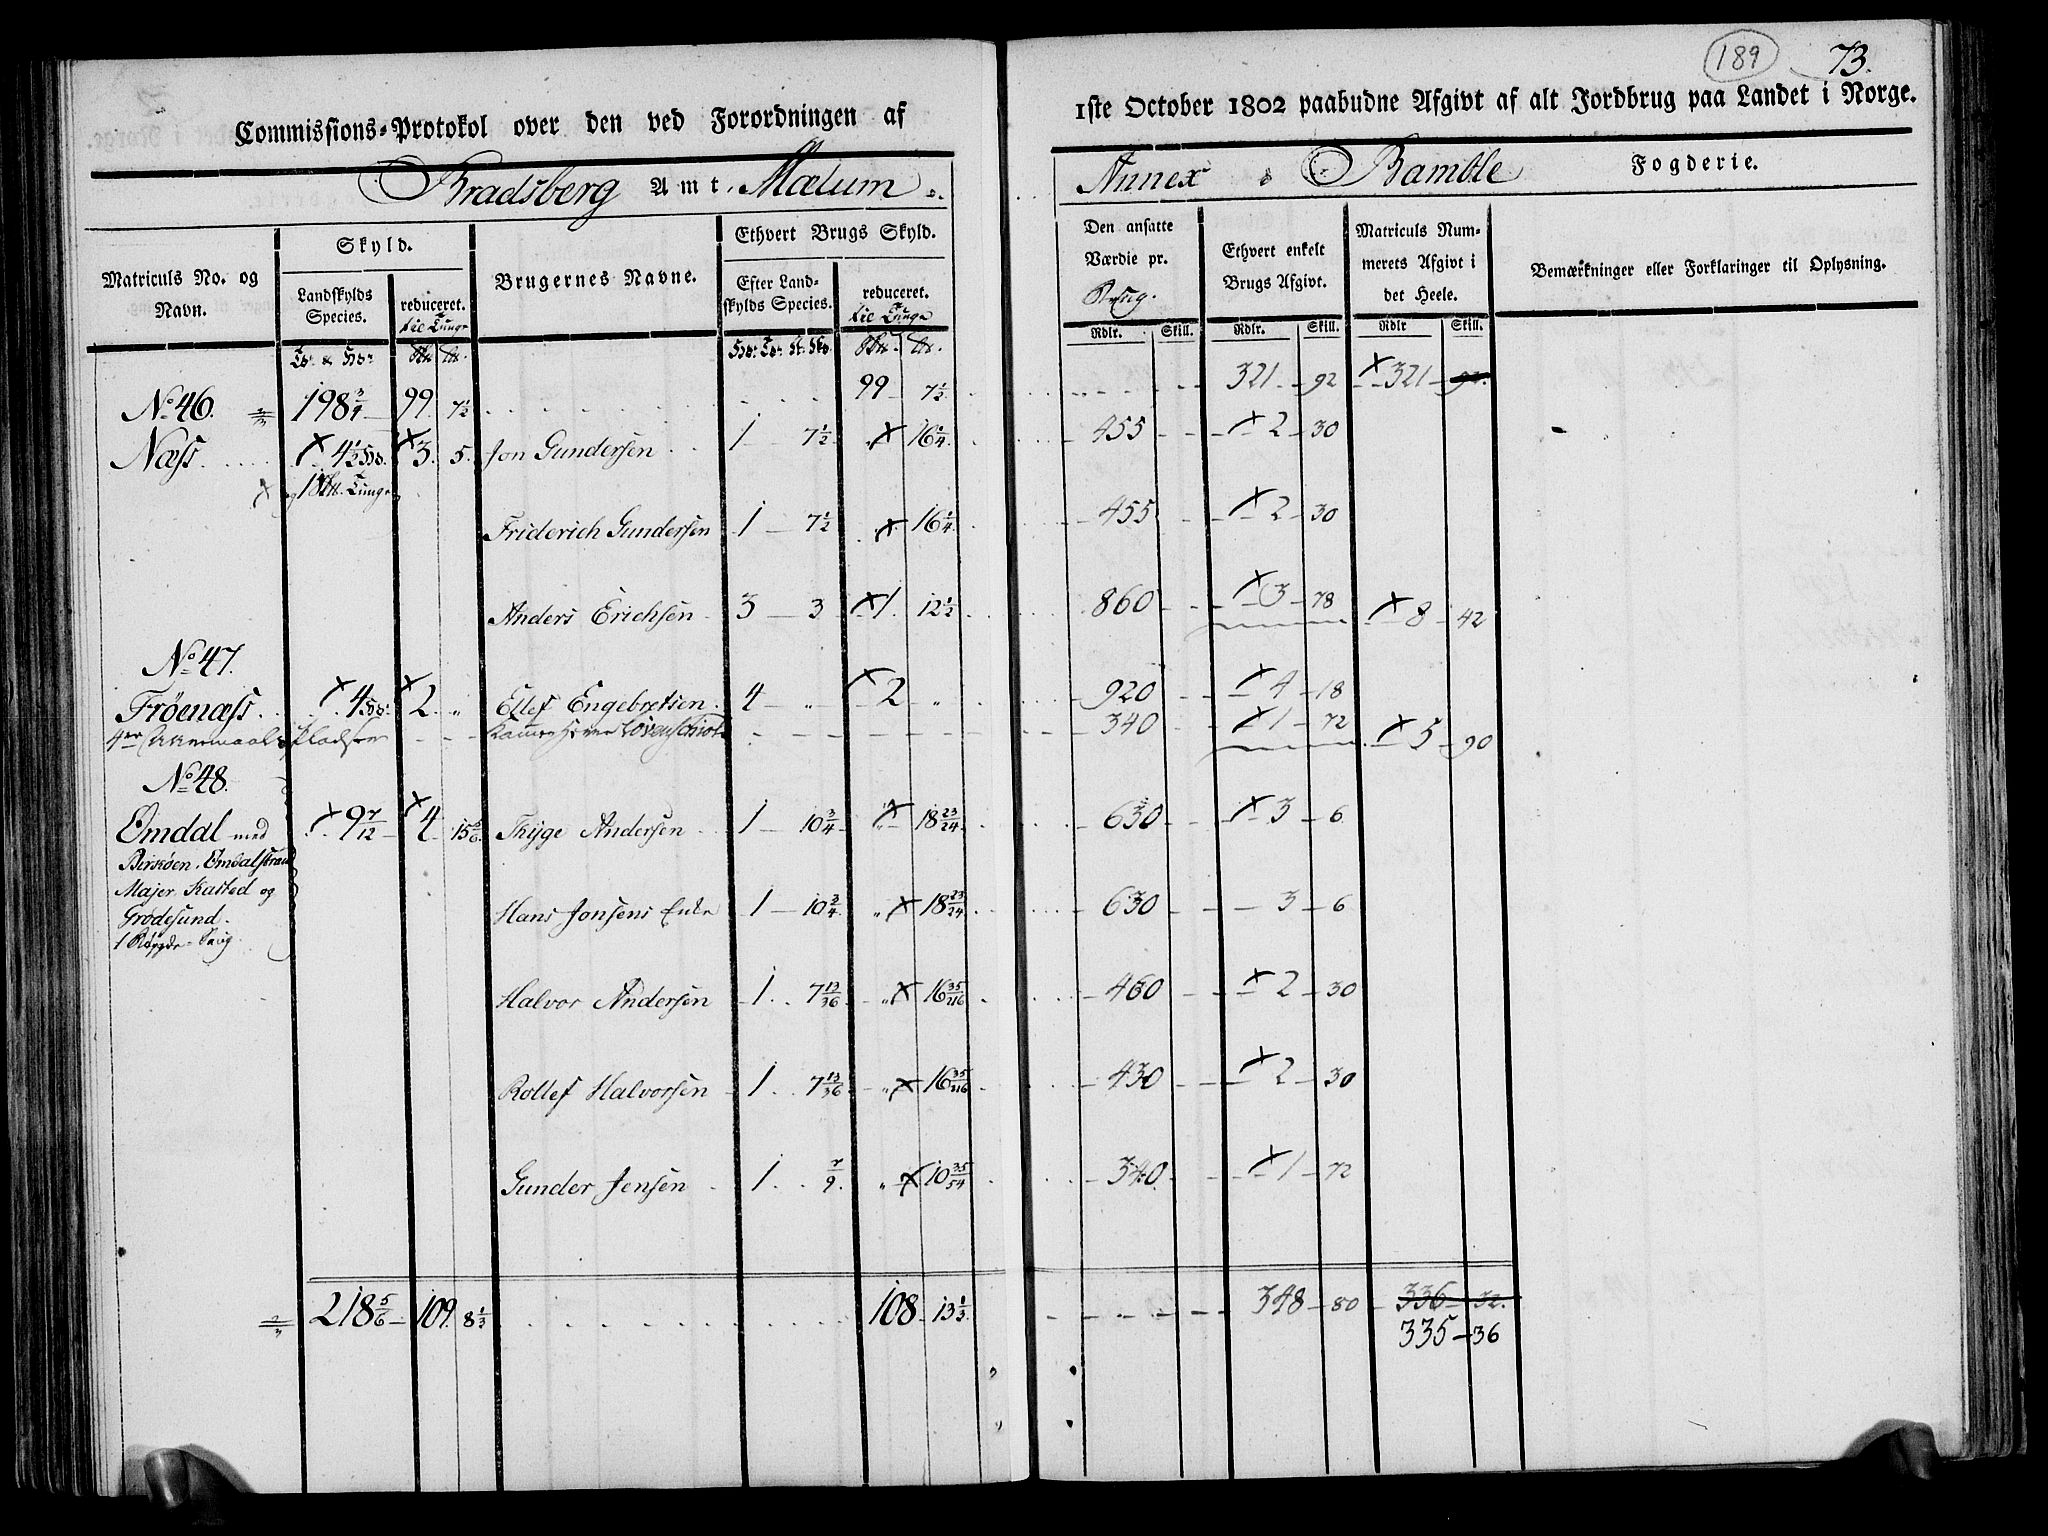 189 73.
Commissions-Protokol over den ved Forordningen af 1ste October 1802 paabudne Afgivt af alt Jordbrug paa Landet i Norge.
Bradsberg Amt. Mælum Annex i Bamble Fogderie.
Matriculs No. og Navn.
Skyld.
Landskylds Species.
reduceret.
til Tunge
Brugernes Navne.
Ethvert Brugs Skyld.
Efter Landskylds Species.
reduceret.
til Tunge
Den ansatte Værdie pr. Brug.
Ethvert enkelt Brugs Afgivt.
Matriculs Nummerets Afgivt i det Heele.
Bemærkninger eller Forklaringer til Oplysning.
Rdlr. Skill. Rdlr. Skill. Rdlr Skill.
No 46. 198 3/4 99 7 1/2 99 7 1/2 321 92 321 92.
Næss 4 1/2 3. 5. Jon Gundersen 1 7 1/2 16 1/4 455 2 30
Friderich Gundersen 1 7 1/2 16 1/4 455 2 30
Anders Erichsen 3 3 1. 12 1/2 860 3 78 8 42
No 47.
Fröenæss 4 2 „ Ellef Engebretsen 4 „ 2 „ 920 4 18
pladser 340 1 72 5 90
No 48.
Omdal med 9 7/12 4 15 5/6 Thyge Andersen 1 10 3/4 „ 18 23/24 630 3 6
Majer Kasted og
Grødesund.
Hans Jonsens Enke 1 10 3/4 „ 18 23/24 630 3 6
Halvor Andersen 1 7 13/36 „ 16 35/216 460 2 30
Rollef Halvorsen 1 7 13/36 „ 16 35/216 430 2 30
Gunder Jensen 1 7/9 „ 10 35/54 340 1 72
218 5/6 109 8 1/3 108 13 1/3 348 80 336 32.
335 36